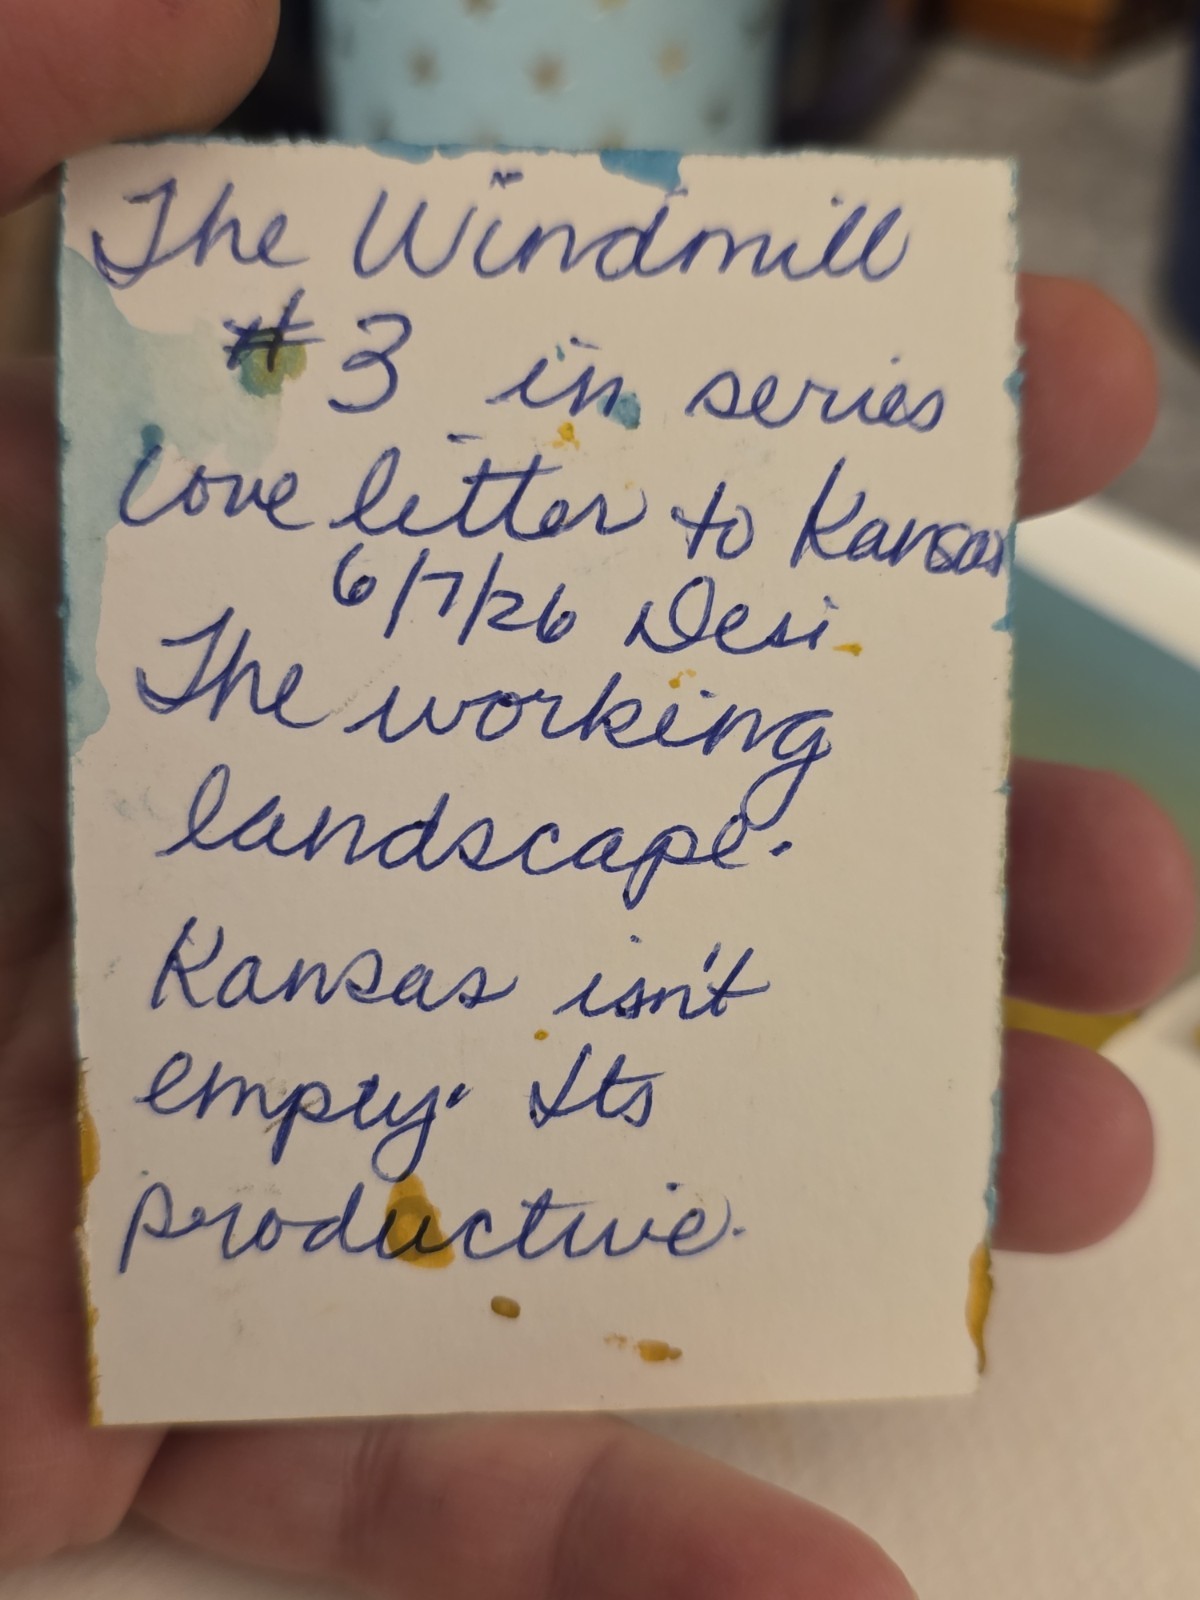 The Windmill
#3 in series
Love letter to Kansas
6/7/26 Desi
The working
landscape.
Kansas isn't
empty. Its
productive.